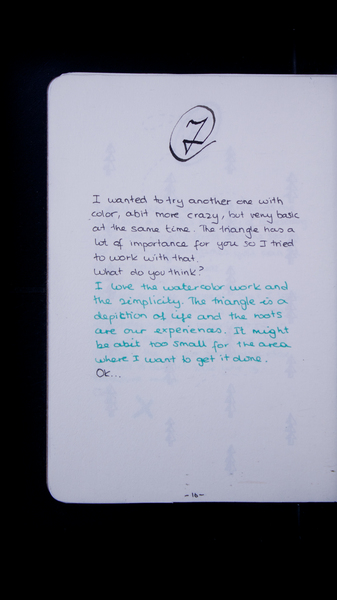 7
I wanted to try another one with
color, abit more crazy, but very basic
at the same time. The triangle has a
lot of importance for you so I tried
to work with that.
What do you think?
I love the watercolor work and
the simplicity. The triangle is a
depiction of life and the roots
are our experiences. It might
be abit too small for the area
where I want to get it done.
Ok...
-16-